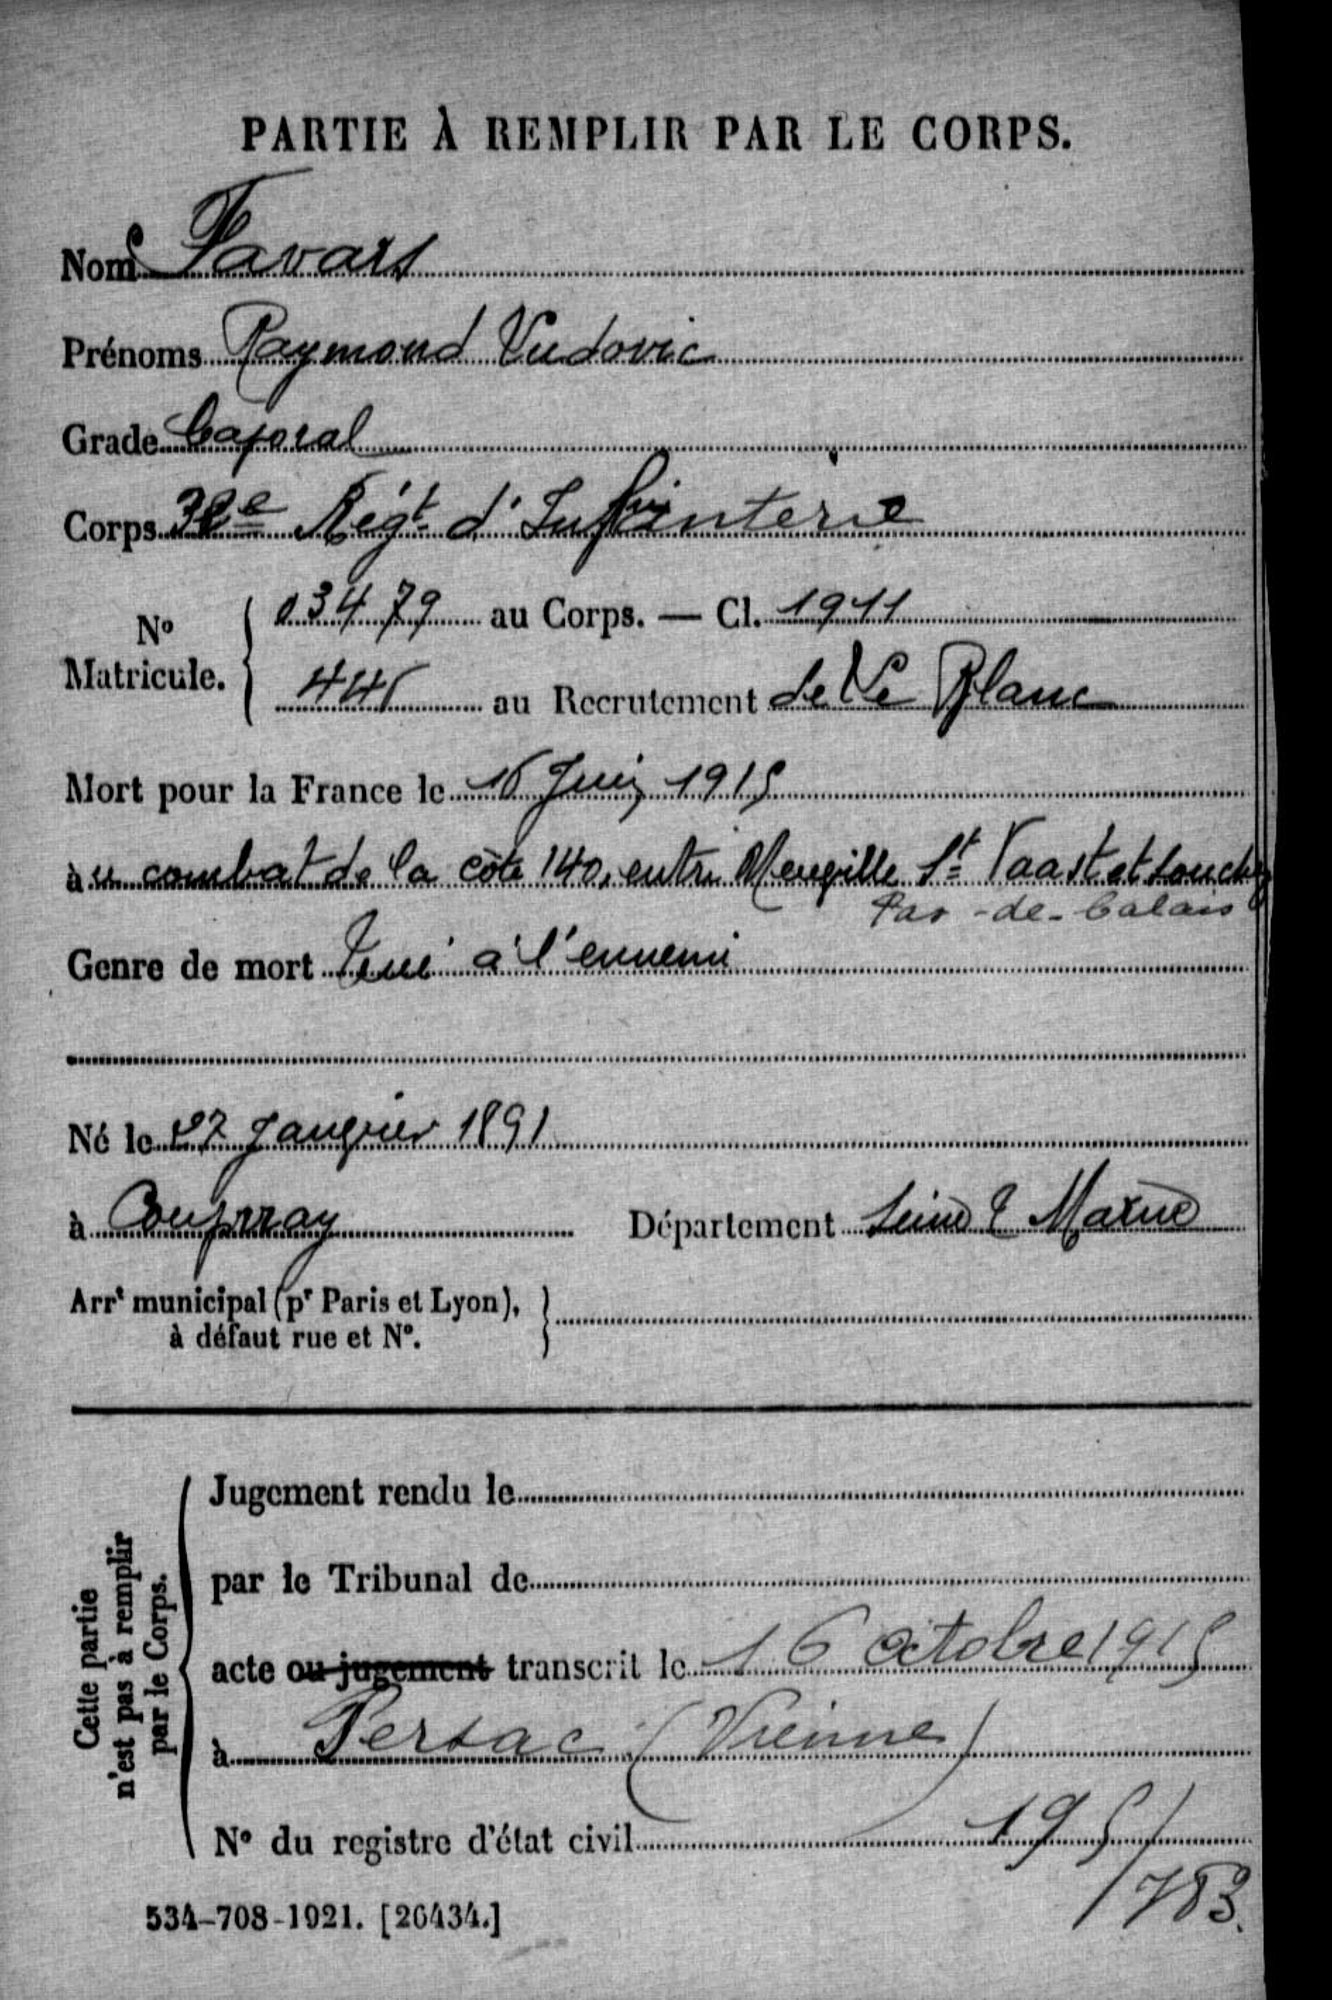 PARTIE À REMPLIR PAR LE CORPS.
Nom Favars
Prénoms Raymond Ludovic
Grade Caporal
Corps 32e Régt d'Infanterie
No Matricule. { 03479 au Corps. — Cl. 1911
446 au Recrutement de Le Blanc
Mort pour la France le 16 Juin 1915
au combat de la côte 140, entre Neuville St Vaast et Souchez
Pas-de-Calais
Genre de mort Tué à l'ennemi
Né le 27 Janvier 1891
à Coupvray Département Seine & Marne
Arrt municipal (pr Paris et Lyon),
à défaut rue et No.
Cette partie n'est pas à remplir par le Corps.
Jugement rendu le
par le Tribunal de
acte ou jugement transcrit le 16 octobre 1915
à Persac (Vienne)
No du registre d'état civil
195/783.
534-708-1921. [26434.]